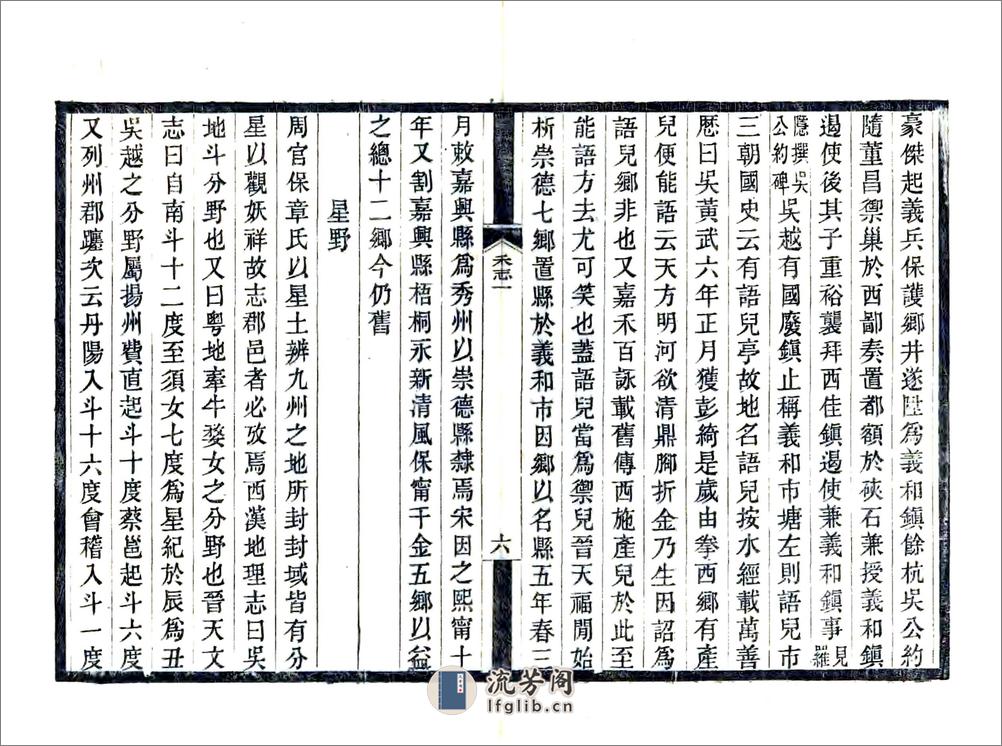 豪傑起義兵保護鄉井遂陞爲義和鎭餘杭吳公約
隨董昌禦巢於西鄙奏置都額於硤石兼授義和鎭
遏使後其子重裕襲拜西佳鎭遏使兼義和鎭事見羅
隱撰吳公約碑吳越有國廢鎭止稱義和市塘左則語兒市
三朝國史云有語兒亭故地名語兒按水經載萬善
歷曰吳黃武六年正月獲彭綺是歲由拳西鄉有產
兒便能語云天方明河欲清鼎腳折金乃生因詔爲
語兒鄉非也又嘉禾百詠載舊傳西施產兒於此至
能語方去尤可笑也蓋語兒當爲禦兒晉天福閒始
析崇德七鄉置縣於義和市因鄉以名縣五年春三
禾志一
六
月敕嘉興縣爲秀州以崇德縣隸焉宋因之熙甯十
年又割嘉興縣梧桐永新清風保甯千金五鄉以益
之總十二鄉今仍舊
星野
周官保章氏以星土辨九州之地所封封域皆有分
星以觀妖祥故志郡邑者必攷焉西漢地理志曰吳
地斗分野也又曰粵地牽牛婺女之分野也晉天文
志曰自南斗十二度至須女七度爲星紀於辰爲丑
吳越之分野屬揚州費直起斗十度蔡邕起斗六度
又列州郡躔次云丹陽入斗十六度會稽入斗一度
流芳阁
lfglib.cn